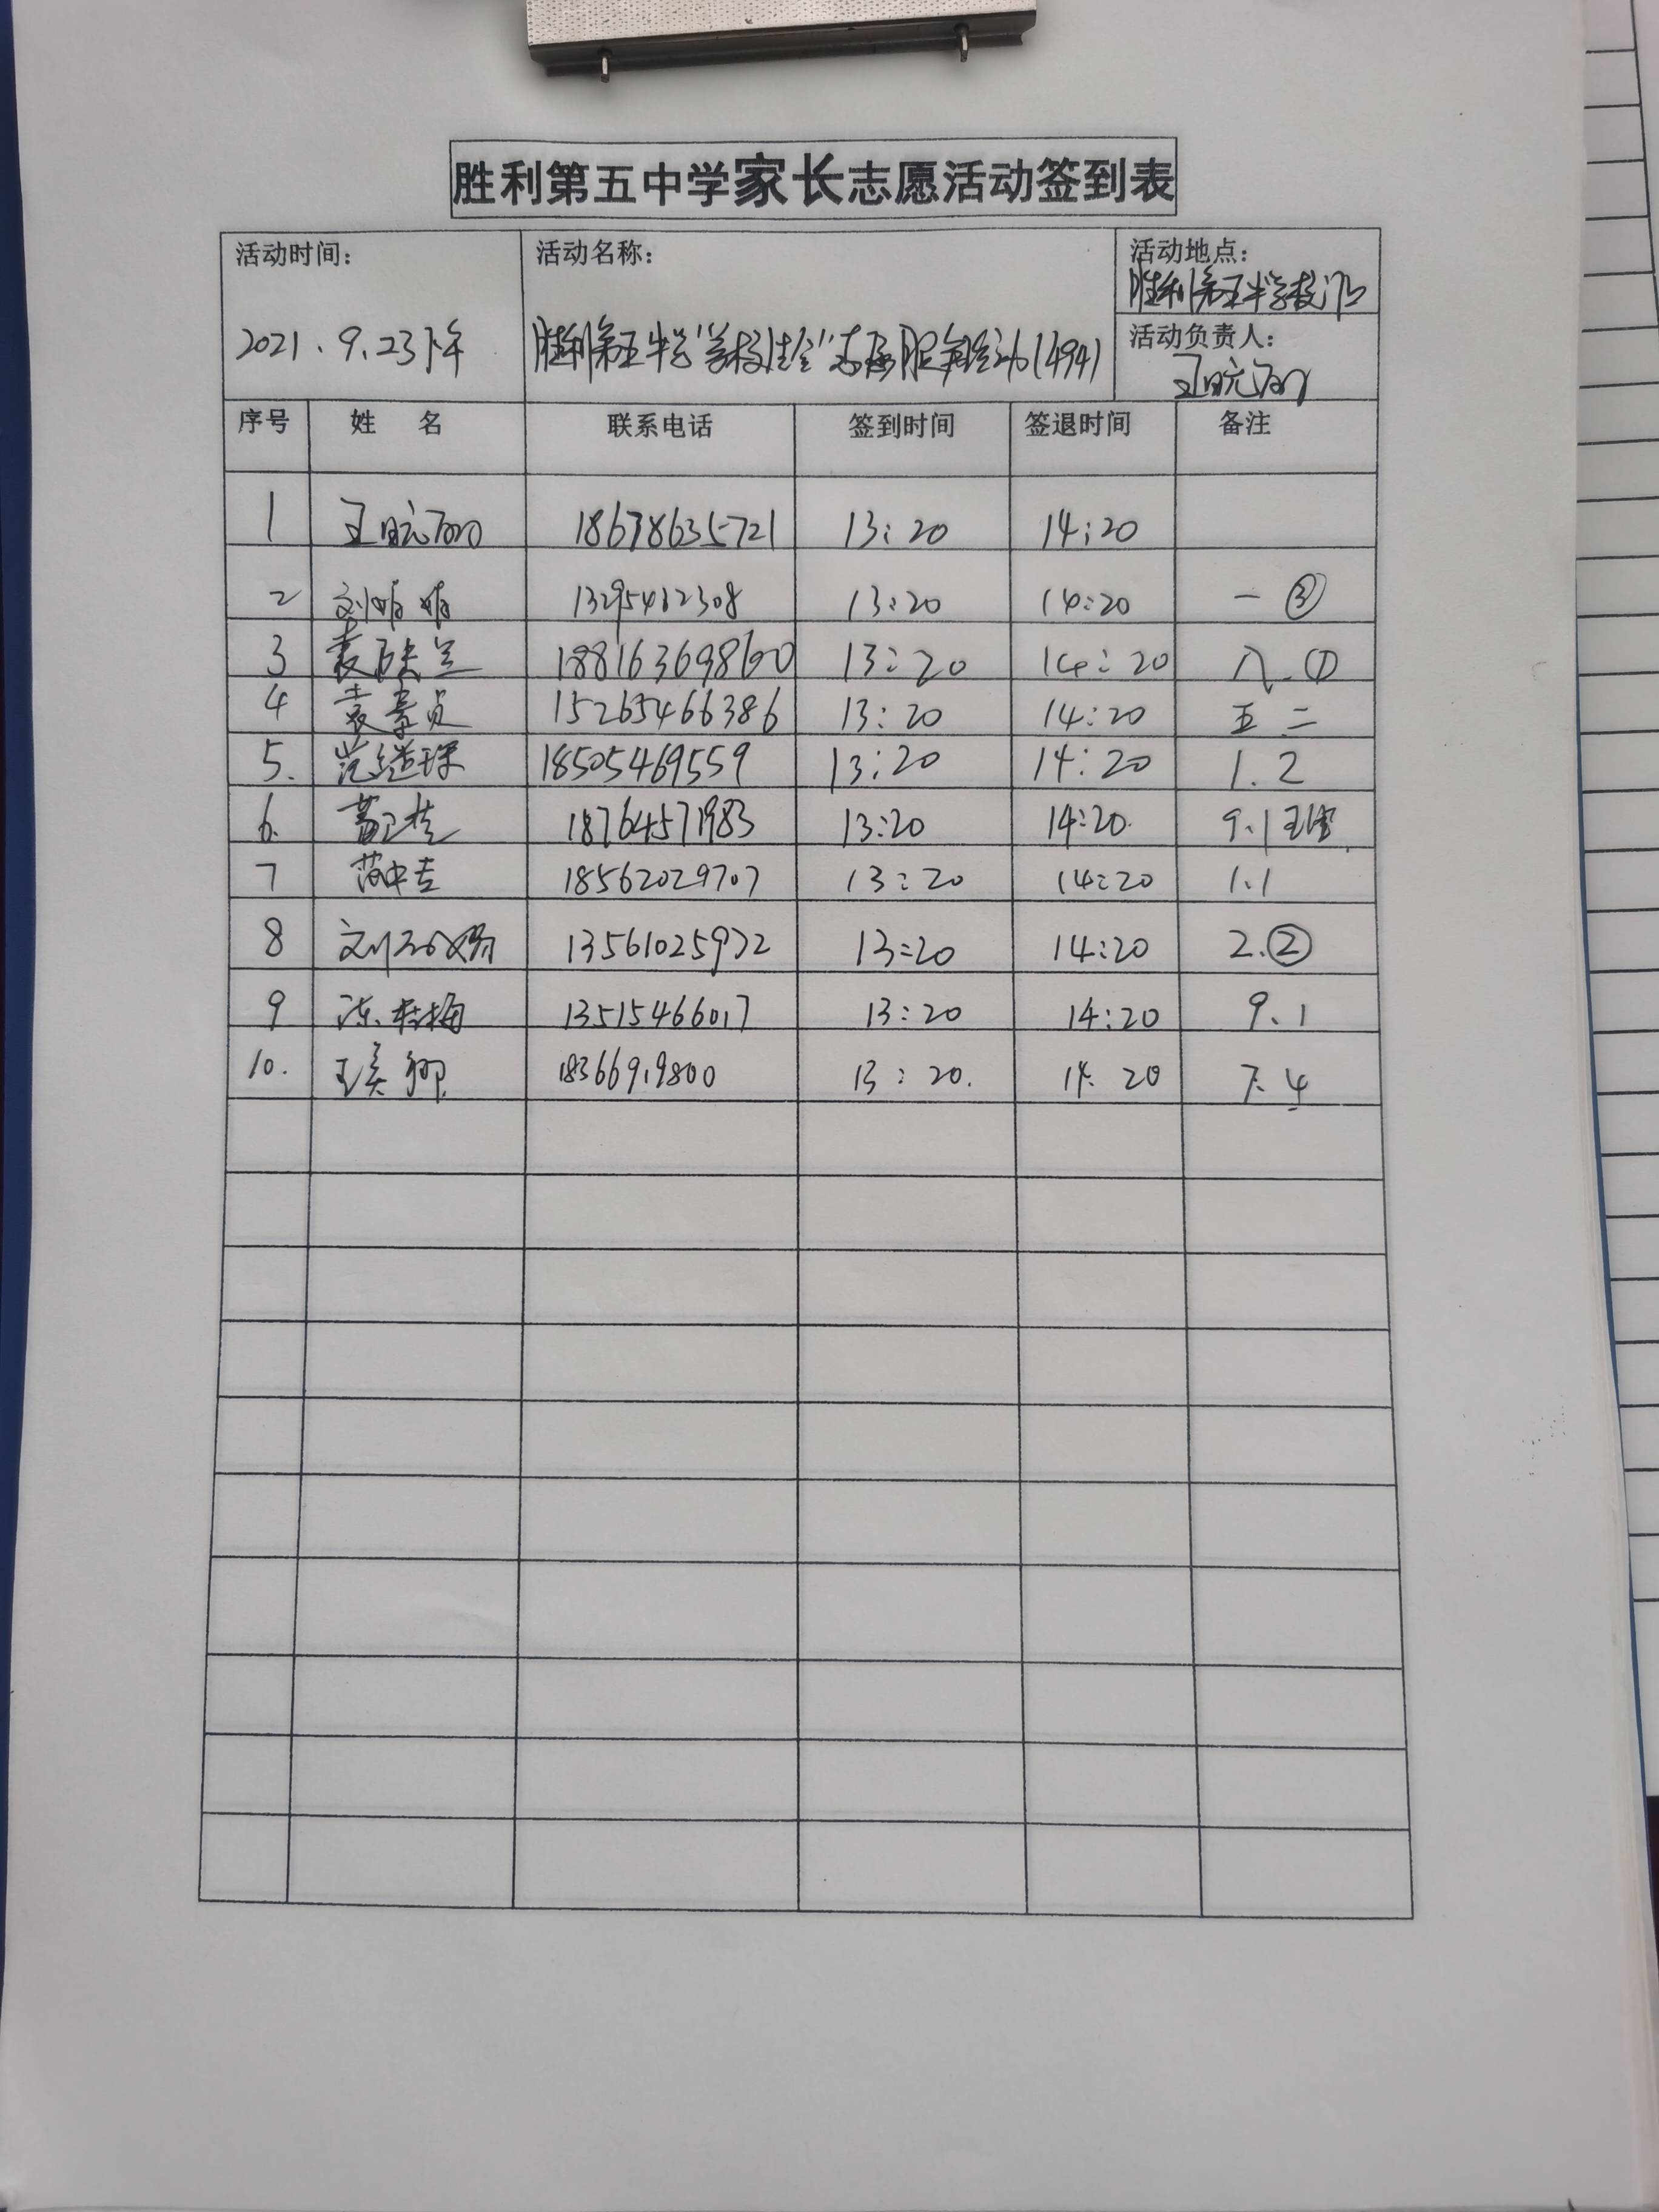 胜利第五中学家长志愿活动签到表
活动时间： 活动名称： 活动地点：
胜利第五中学校门口
2021.9.23下午 胜利第五中学"学校住宿"志愿服务活动(494)
活动负责人：
序号 姓 名 联系电话 签到时间 签退时间 备注
1 18678635721 13:20 14:20
2 刘娟娟 13295412308 13:20 14:20 一 ③
3 18816369860 13:20 14:20 八.①
4 袁景贞 15265466386 13:20 14:20 五 二
5. 范继琛 18505469559 13:20 14:20 1.2
6. 18764571983 13:20 14:20. 9.1
7 范中吉 18562029707 13:20 14:20 1.1
8 13561025972 13:20 14:20 2.②
9 陈桂梅 13515466017 13:20 14:20 9.1
10. 王美卿 18366919800 13:20. 14:20 7.4